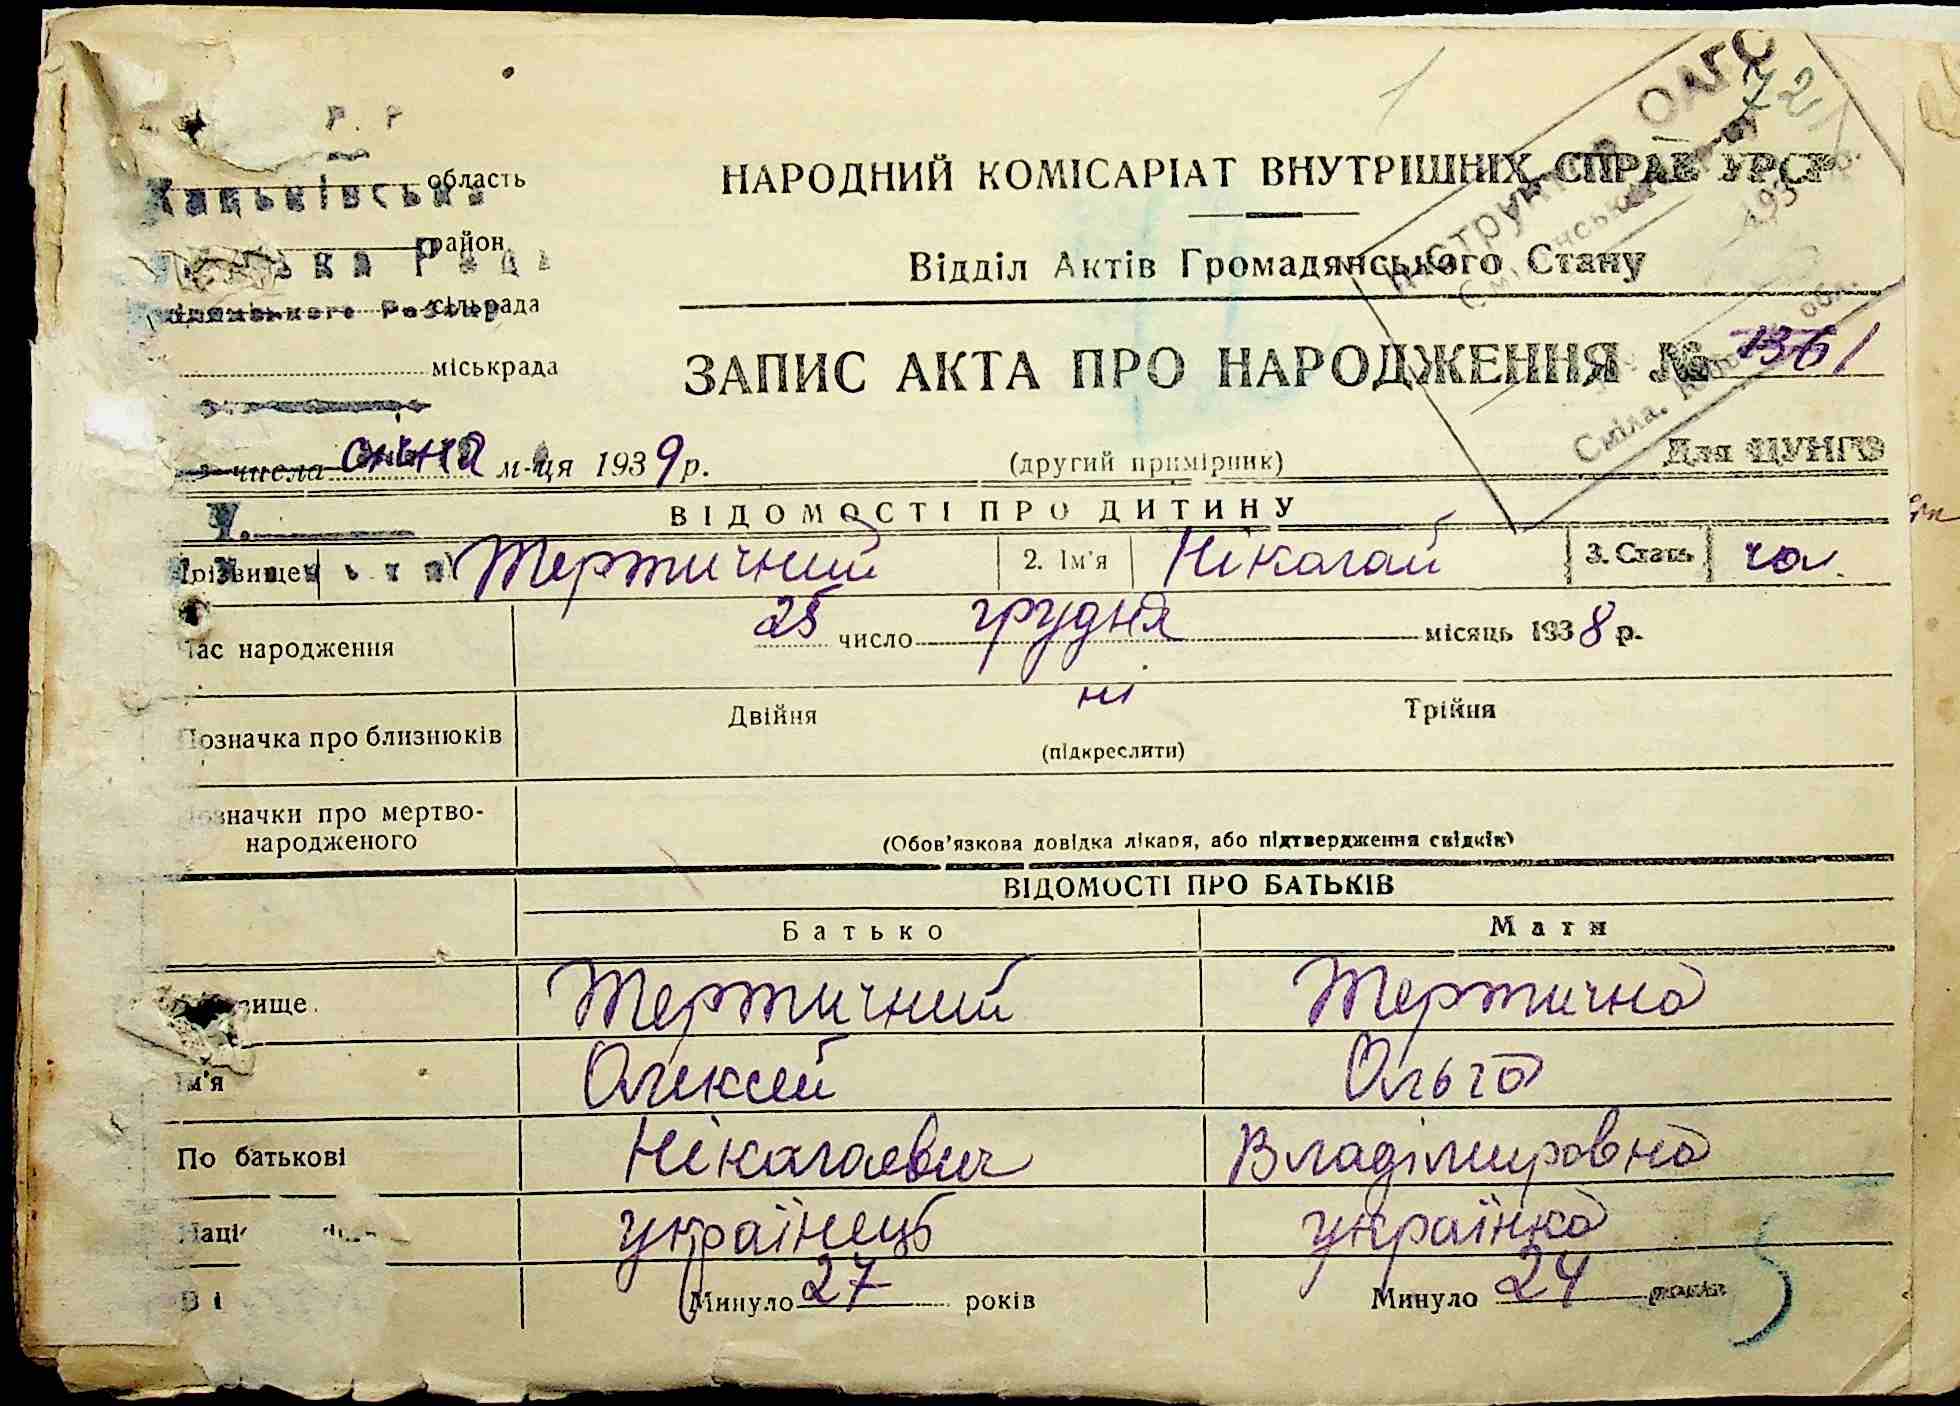 область
район
сільрада
міськрада
НАРОДНИЙ КОМІСАРІАТ ВНУТРІШНІХ СПРАВ УРСР
Відділ Актів Громадянського Стану
ЗАПИС АКТА ПРО НАРОДЖЕННЯ №
числа січня м-ця 1939 р.
(другий примірник)
Для ЦУНГО
ВІДОМОСТІ ПРО ДИТИНУ
Прізвище Тертичний 2. Ім'я Ніколай 3. Стать чол.
Час народження 25 число грудня місяць 1938 р.
ні
Позначка про близнюків Двійня Трійня
(підкреслити)
Позначки про мертво-
народженого
(Обов'язкова довідка лікаря, або підтвердження свідків)
ВІДОМОСТІ ПРО БАТЬКІВ
Батько Мати
Тертичний Тертична
Ім'я Олексей Ольга
По батькові Ніколаевич Владімировна
українець українка
Минуло 27 років Минуло 24 років